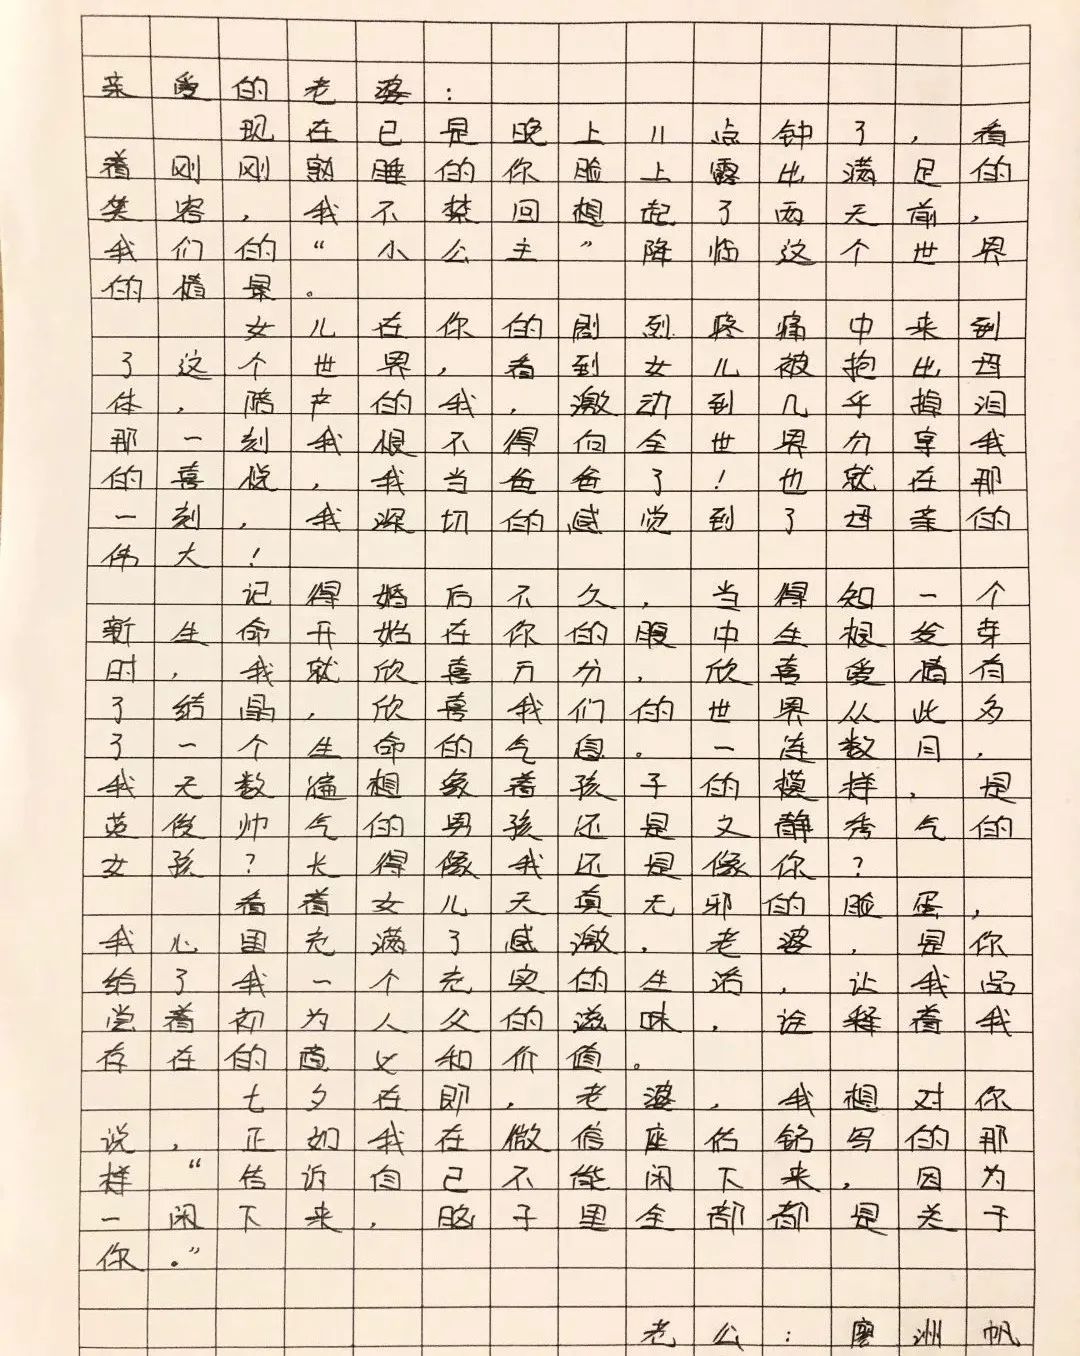 亲爱的老婆：
现在已是晚上11点钟了，看
着刚刚熟睡的你脸上露出满足的
笑容，我不禁回想起了两天前，
我们的“小公主”降临这个世界
的情景。
女儿在你的剧烈疼痛中来到
了这个世界，看到女儿被抱出母
体，陪产的我，激动到几乎掉泪
那一刻我恨不得向全世界分享我
的喜悦，我当爸爸了！也就在那
一刻，我深切的感觉到了母亲的
伟大！
记得婚后不久，当得知一个
新生命开始在你的腹中生根发芽
时，我就欣喜万分，欣喜爱情有
了结晶，欣喜我们的世界从此多
了一个生命的气息。一连数月，
我无数遍想象着孩子的模样，是
英俊帅气的男孩还是文静秀气的
女孩？长得像我还是像你？
看着女儿天真无邪的脸蛋，
我心里充满了感激，老婆，是你
给了我一个充实的生活，让我品
尝着初为人父的滋味，诠释着我
存在的意义和价值。
七夕在即，老婆，我想对你
说，正如我在微信座右铭写的那
样“告诉自己不能闲下来，因为
一闲下来，脑子里全部都是关于
你。”
老公：廖洲帆